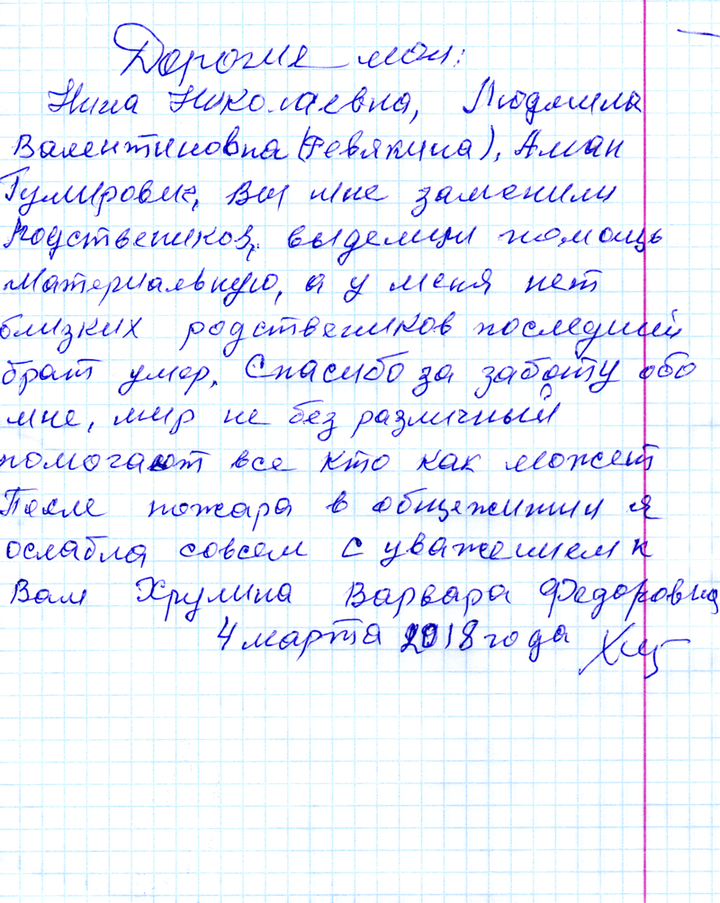 Дорогие мои:
Нина Николаевна, Людмила
Валентиновна (Ревякина), Аман
Гумирович, Вы мне заменили
Родствеников, выделили помощь
материальную, а у меня нет
близких родствеников последний
брат умер. Спасибо за заботу обо
мне, мир не без различный
помогают все кто как может
После пожара в общежитии я
ослабла совсем с уважением к
Вам Хрулина Варвара Федоровна
4 марта 2018 года